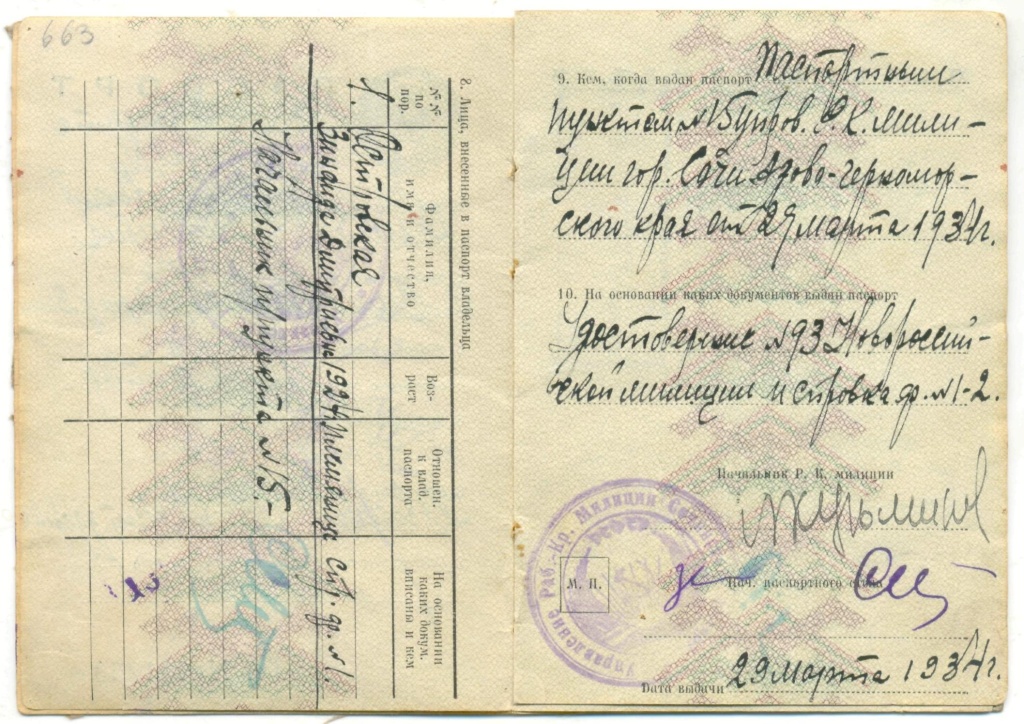 663
8. Лица, внесенные в паспорт владельца
№№ по пор.
Фамилия, имя и отчество
Воз-
раст
Отношен.
к влад.
паспорта
На основании
каких докум.
вписаны и кем
1. Островская
Зинаида Дмитриевна 1924 племянница Спр. ф. №1.
Начальник п/пункта №15.-
15
9. Кем, когда выдан паспорт Паспортным
пунктом №15 Управ. Р.К. мили-
ции гор. Сочи Азово-Черномор-
ского края от 29 марта 1934 г.
10. На основании каких документов выдан паспорт
Удостоверение №93 Новороссий-
ской милиции и справка ф. №1-2.
Начальник Р. К. милиции
Управление Раб.-Кр. Милиции
М. П.
Нач. паспортного стола
Дата выдачи 29 марта 1934 г.